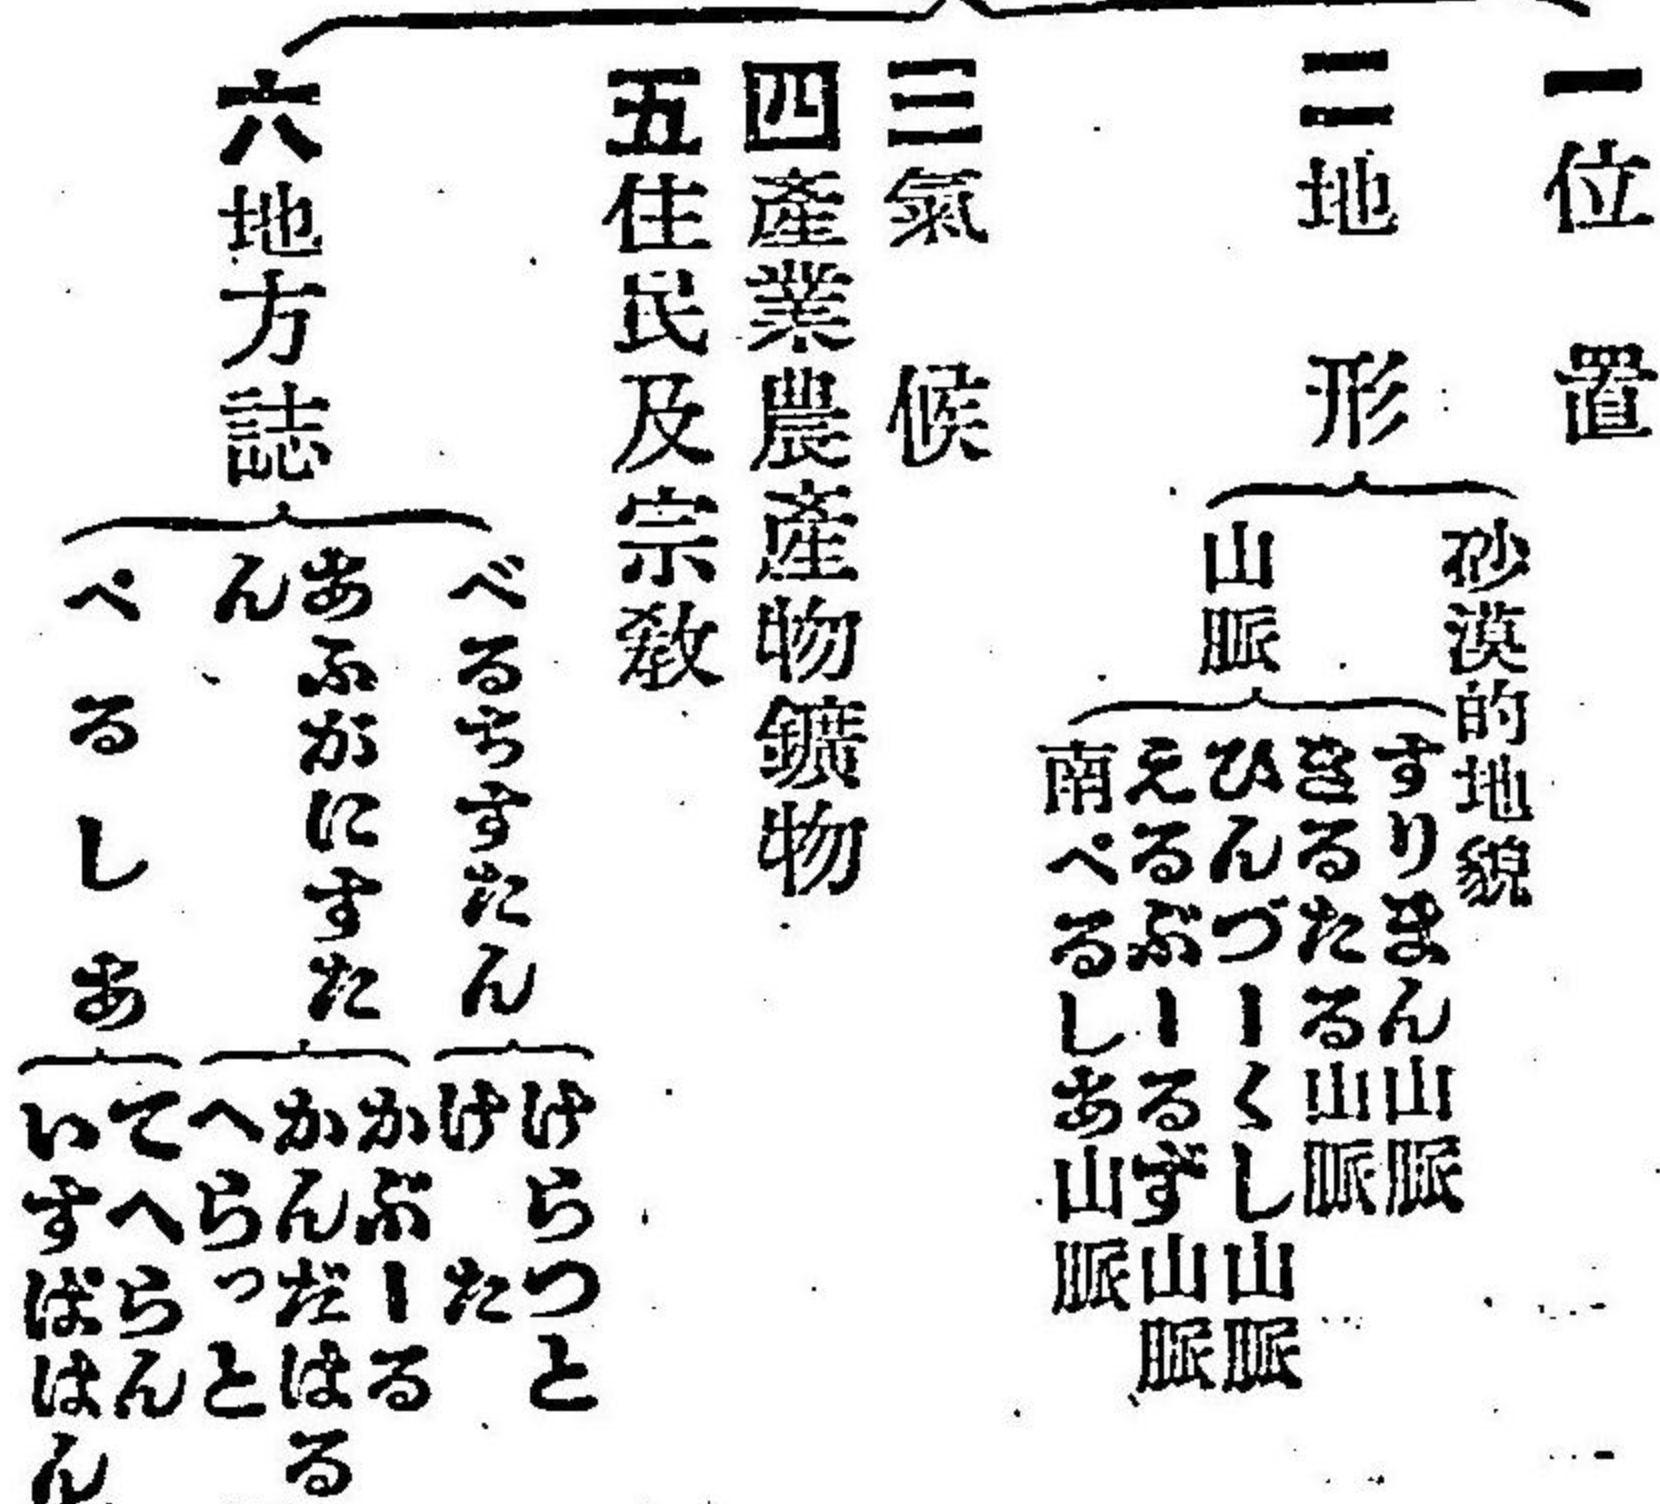 一位置
二地形
砂漠的地貌
山脈
すりまん山脈
きるたる山脈
ひんづーくし山脈
えるぶーるず山脈
南ぺるしあ山脈
三氣候
四產業農產物鑛物
五住民及宗敎
六地方誌
べるちすたん
けらつと
けた
あふがにすた
ん
かぶーる
かんだはる
へらっと
ぺるしあ
てへらん
いすぱはん